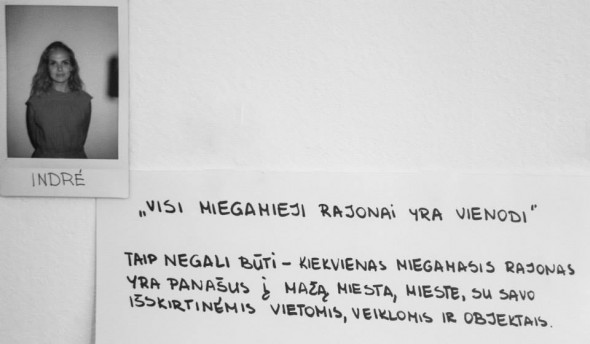 INDRĖ
„VISI MIEGAMIEJI RAJONAI YRA VIENODI"
TAIP NEGALI BŪTI – KIEKVIENAS MIEGAMASIS RAJONAS
YRA PANAŠUS Į MAŽĄ MIESTĄ, MIESTE, SU SAVO
IŠSKIRTINĖMIS VIETOMIS, VEIKLOMIS IR OBJEKTAIS.